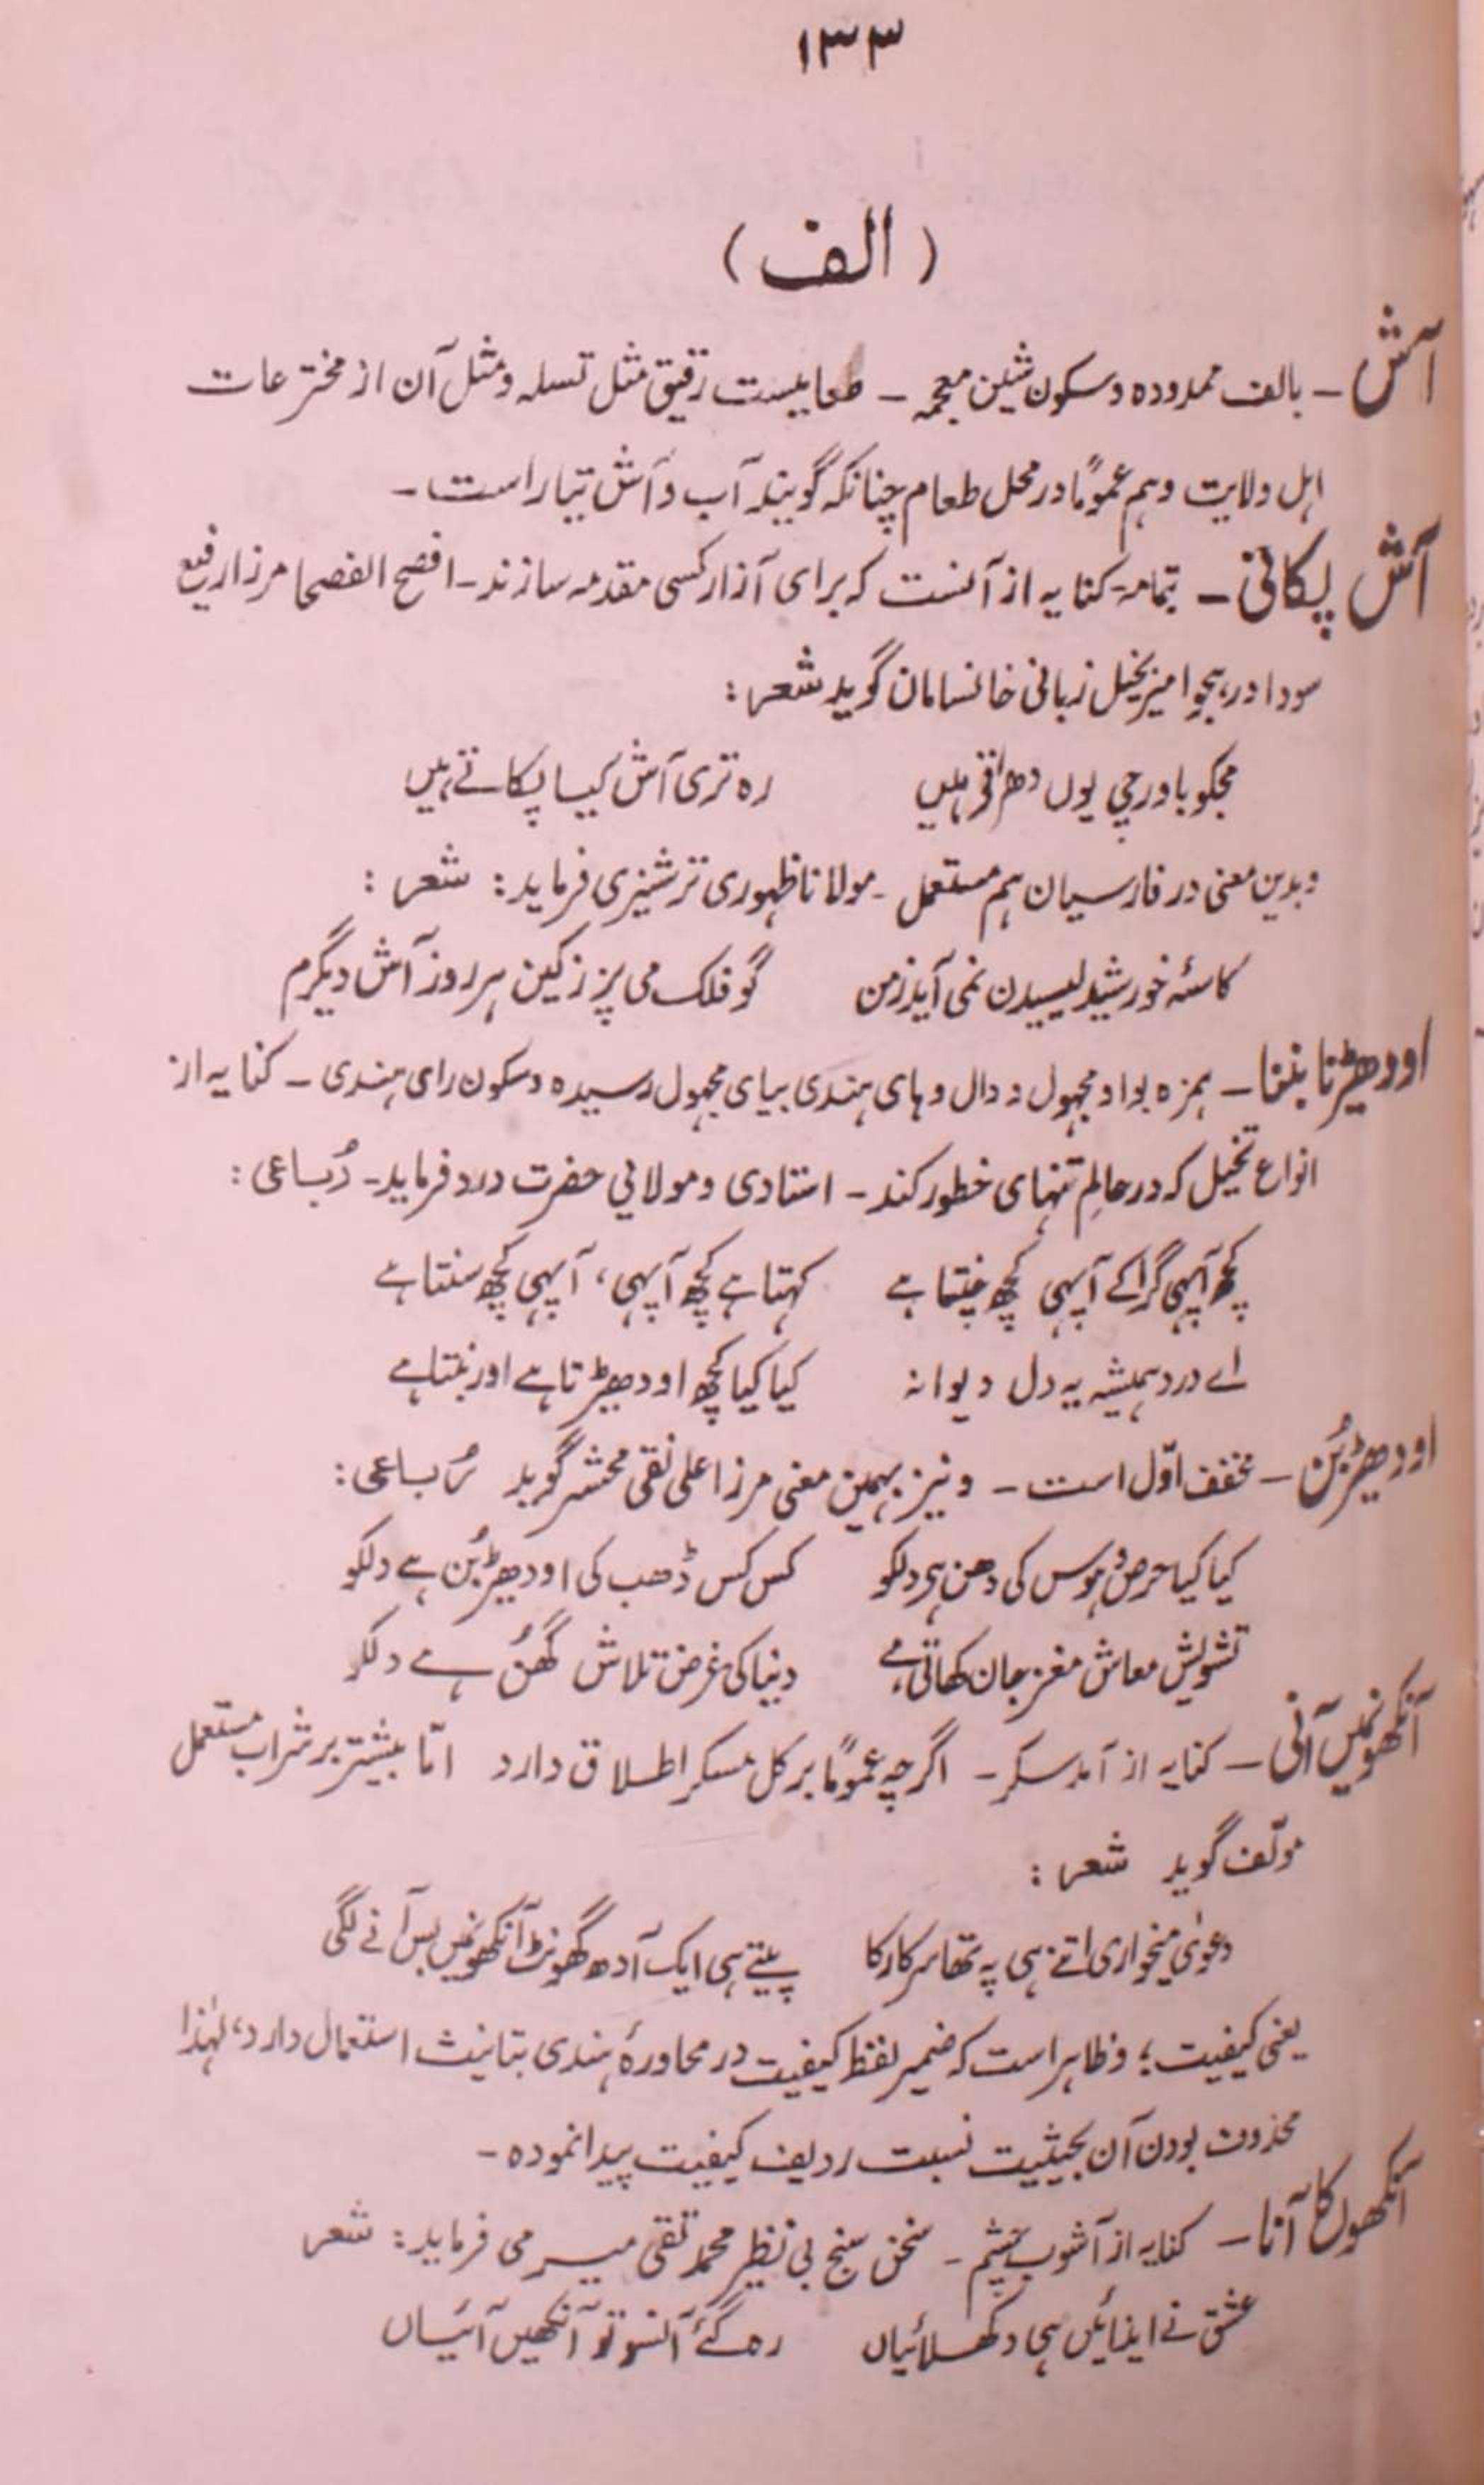 ۱۳۳
(الف)
آش ـ بالف ممدوده و سکون شین معجمہ ـ طعامیست رقیق مثل تسلہ و مثل آن از مخترعات
اہل ولایت و ہم عموماً در محل طعام چنانکہ گویند آب و آش تیار است ـ
آش پکانی ـ بتمامہ کنایہ از آنست کہ برای آزار کسی مقدمہ سازند ـ افصح الفصحا مرزا رفیع
سودا در ہجو امیر بخیل زبانی خانسامان گوید شعر :
مجکو باورچی یوں دھراتے ہیں رہ تری آش کیسا پکاتے ہیں
و بدین معنی در فارسیان ہم مستعمل ـ مولانا ظہوری ترشیزی فرماید : شعر :
کاسۂ خورشید لیسیدن نمی آید زمن گو فلک می پز زکین ہر روز آش دیگرم
اودھیڑنا بننا ـ ہمزہ بواو مجہول و دال و ہای ہندی بیای مجہول رسیدہ و سکون رای ہندی ـ کنایہ از
انواع تخیل کہ در عالم تنہای خطور کند ـ استادی و مولائی حضرت درد فرماید ـ رُباعی :
کچھ آپہی گراکے آپہی کچھ چنتا ہے کہتا ہے کچھ آپہی، آپہی کچھ سنتا ہے
اے درد ہمیشہ یہ دل دیوانہ کیا کیا کچھ اودھیڑتا ہے اور بنتا ہے
اودھیڑبُن ـ مخفف اوّل است ـ و نیز بہمین معنی مرزا علی نقی محشر گوید رُباعی :
کیا کیا حرص و ہوس کی دھن ہی دلکو کس کس ڈھب کی اودھیڑبُن ہے دلکو
تشویش معاش مغز جان کھاتی ہے دنیا کی غرض تلاش گھُن ہے دلکو
آنکھونمیں آنی ـ کنایہ از آمد سکر ـ اگرچہ عموماً بر کل مسکر اطلاق دارد امّا بیشتر بر شراب مستعمل
مولّف گوید شعر :
دعویٰ میخواری اتنے ہی پہ تھا سرکار کا پیتے ہی ایک آدھ گھونٹ آنکھونمیں بس آنے لگی
یعنی کیفیت؛ و ظاہر است کہ ضمیر لفظ کیفیت در محاورۂ ہندی بتانیث استعمال دارد، لہٰذا
محذوف بودن آن بحیثیت نسبت ردیف کیفیت پیدا نمودہ ـ
آنکھوں کا آنا ـ کنایہ از آشوب چشم ـ سخن سنج بی نظیر محمد تقی میر می فرماید : شعر
عشق نے ایذائیں ہی دکھلائیاں رہ گئے آنسو تو آنکھیں آئیاں